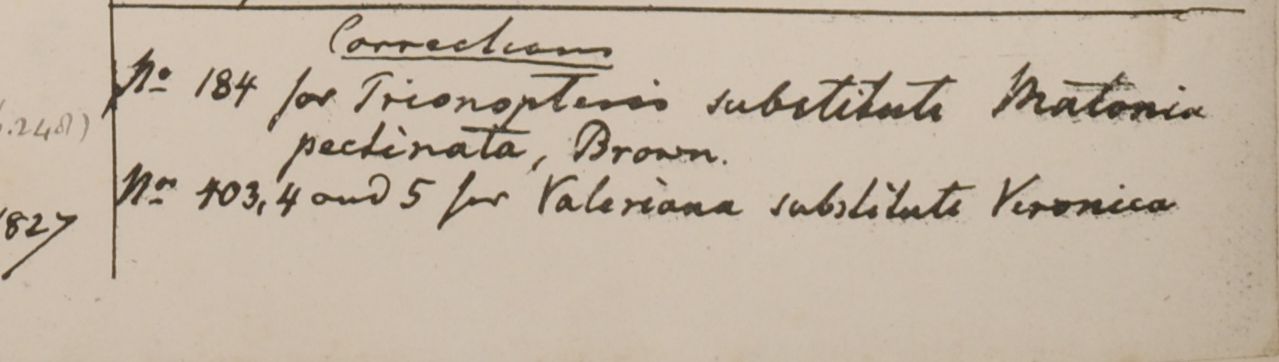 Corrections
No 184 for Trionopteris substitute Matonia
pectinata, Brown.
Nos 403, 4 and 5 for Valeriana substitute Veronica
1827